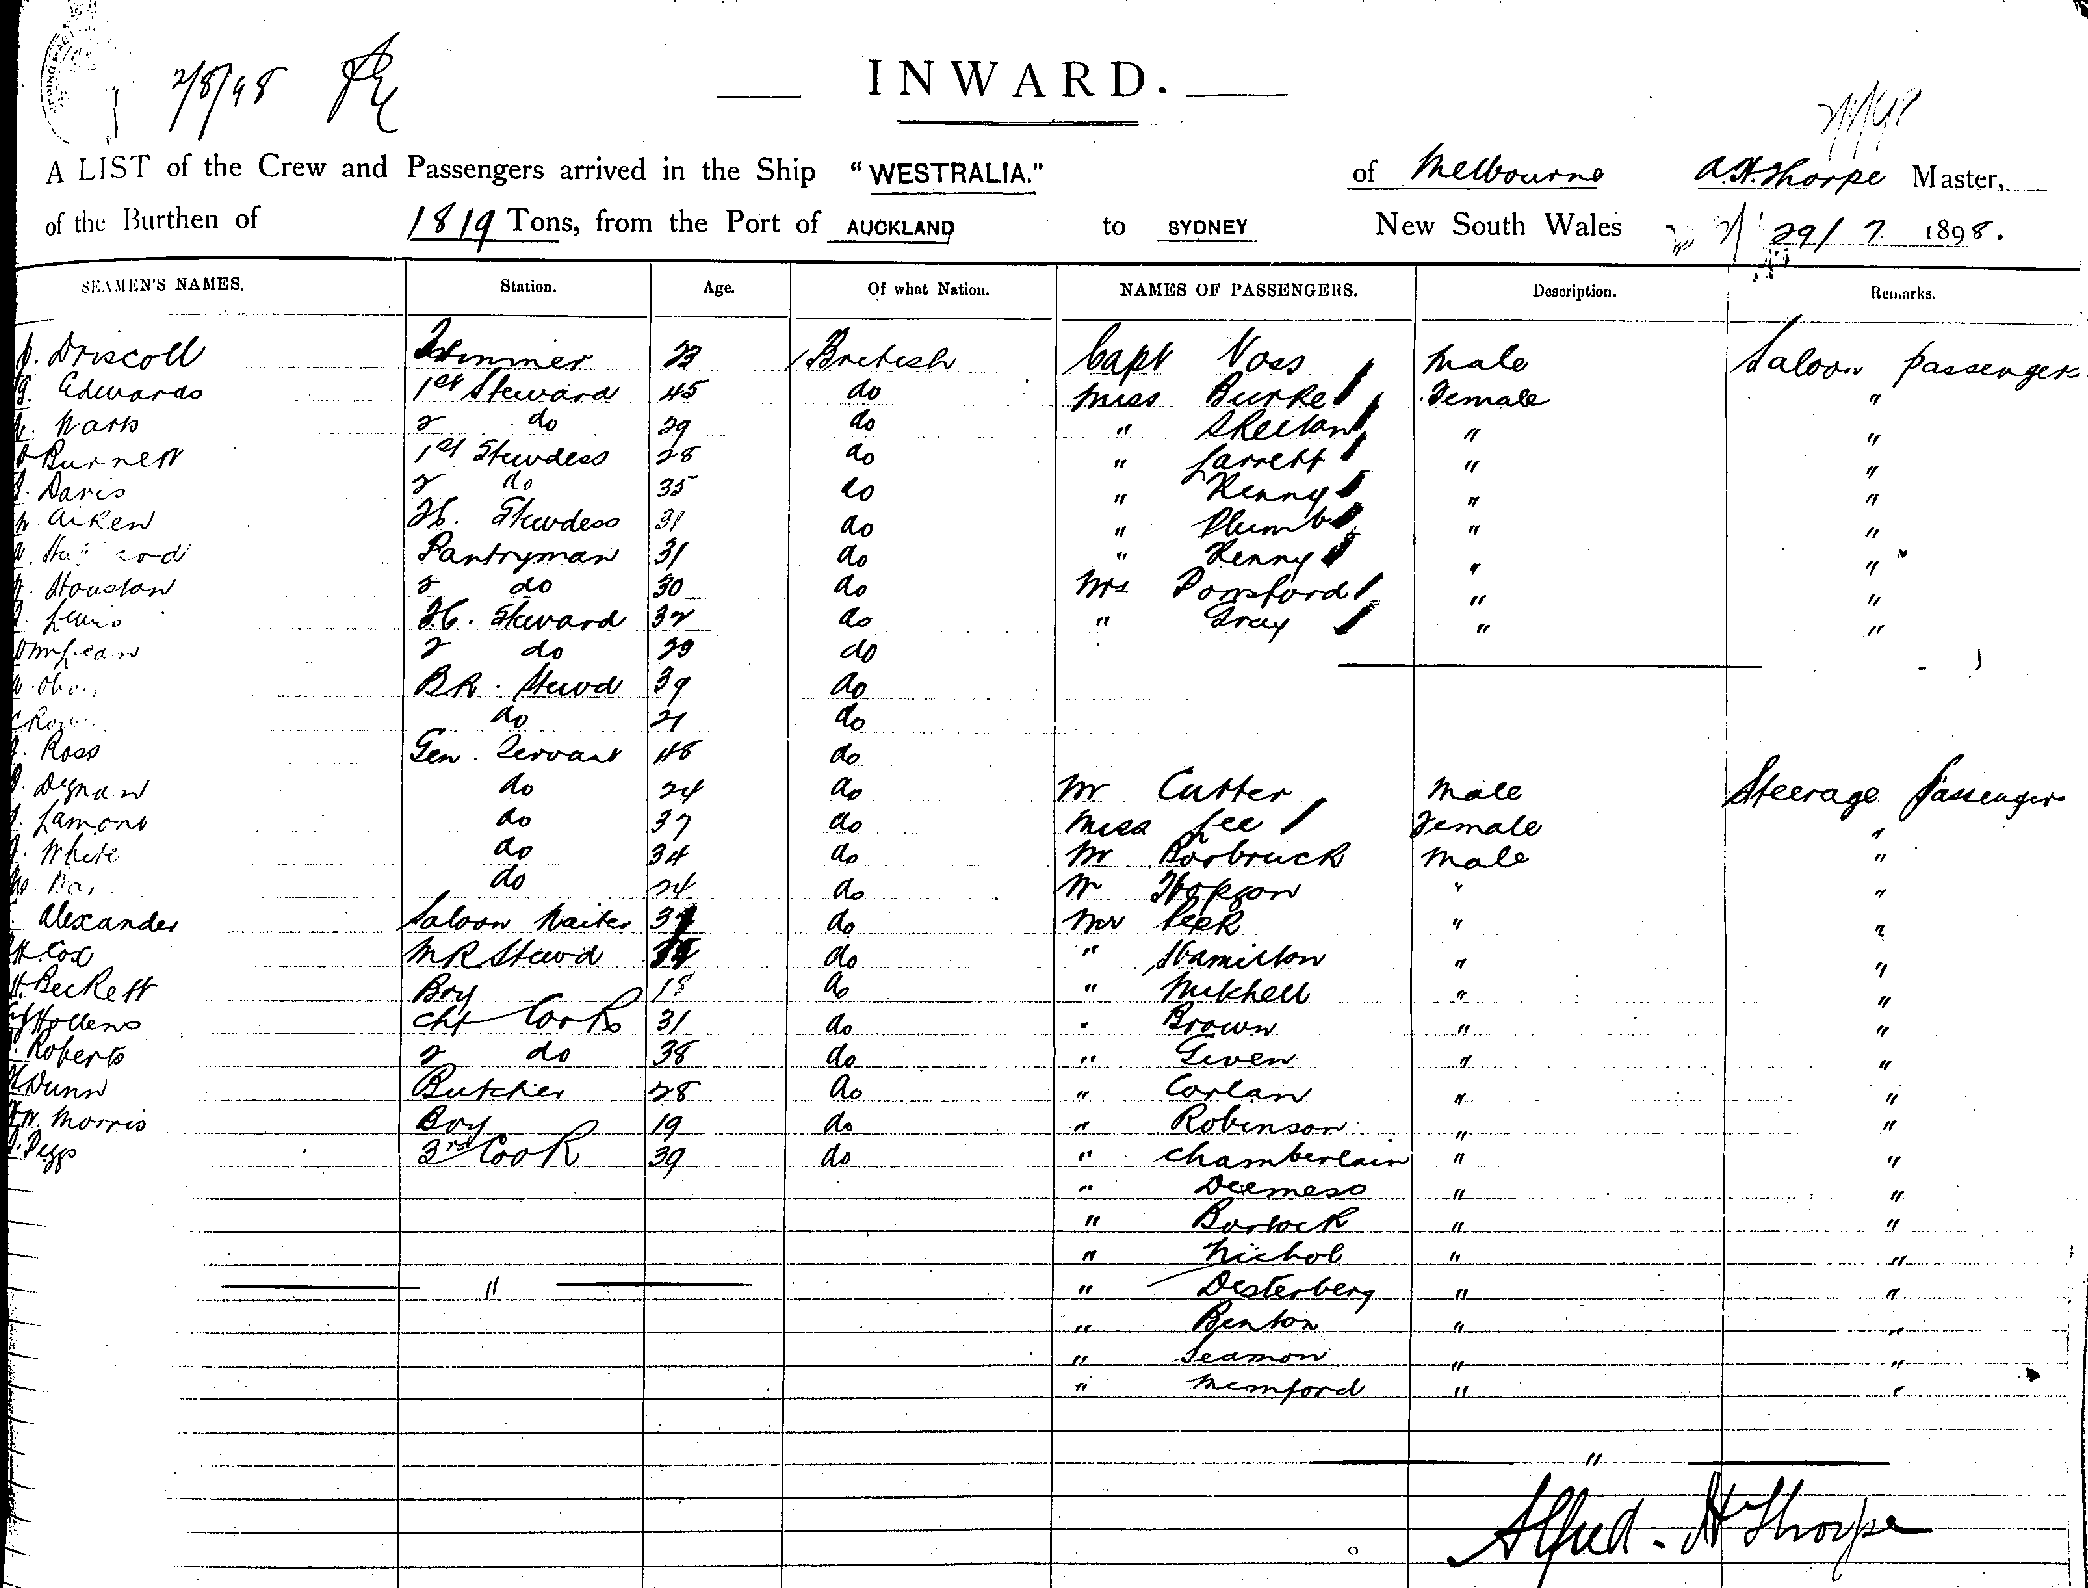 2/8/98
INWARD.
A LIST of the Crew and Passengers arrived in the Ship "WESTRALIA." of Melbourne A.H. Thorpe Master,
of the Burthen of 1819 Tons, from the Port of AUCKLAND to SYDNEY New South Wales 29/7 1898.
SEAMEN'S NAMES. Station. Age. Of what Nation. NAMES OF PASSENGERS. Description. Remarks.
J. Driscoll Trimmer 23 British Capt Voss Male Saloon Passengers
Edwards 1st Steward 45 do Miss Burke Female "
2 do 29 do " Skeltan " "
Burnett 1st Stewdess 28 do " Jarrett " "
Davis 2 do 35 do " Kenny " "
Aiken Stewdess 31 do " Plumb " "
Pantryman 31 do " Kenny " "
Houston 2 do 30 do Mrs Ponsford " "
Lewis Steward 32 do " Gray " "
2 do 29 do
BR. Stewd 39 do
do 21 do
Ross Gen. Servant 48 do
Degnan do 24 do Mr Cutter Male Steerage Passengers
Lamont do 37 do Miss Lee Female "
White do 34 do Mr Borbruck Male "
do 24 do Mr " "
Alexander Saloon Waiter do Mr Peek " "
H. Cox MR Stewd do " Hamilton " "
H. Beckett Boy 18 do " Mitchell " "
Hollens Chf Cook 31 do " Brown " "
Roberts 2 do 38 do " Given " "
Dunn Butcher 28 do " Corlan " "
Morris Boy 19 do " Robinson " "
Pegg 3rd Cook 39 do " Chamberlain " "
" " "
" Borlock " "
" Nichol " "
" " Desterberg " "
" Benton " "
" Seamon " "
" Memford " "
"
Alfred. H Thorpe